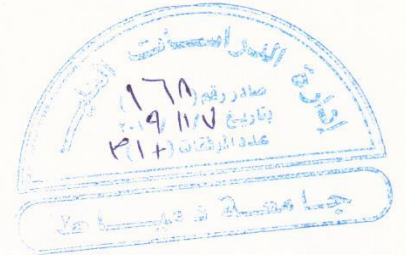 إدارة الدراسات العليا
صادر رقم (١٦٨)
بتاريخ ٧ / ١١ / ٢٠١٩
عدد المرفقات (
جامعة دمياط